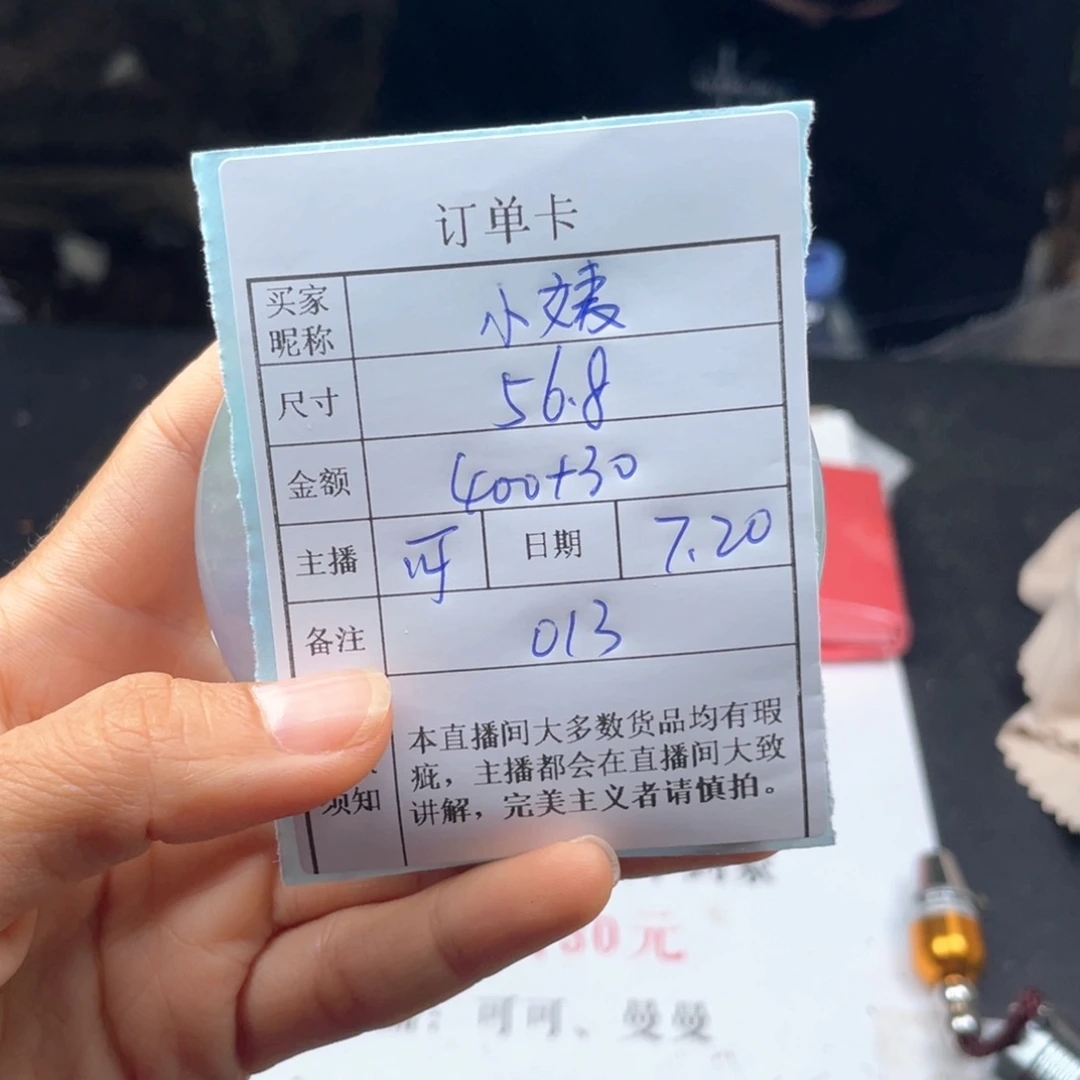 订单卡
买家昵称 小婊
尺寸 56.8
金额 400+30
主播 可 日期 7.20
备注 013
须知
本直播间大多数货品均有瑕
疵，主播都会在直播间大致
讲解，完美主义者请慎拍。
30元
可可、曼曼